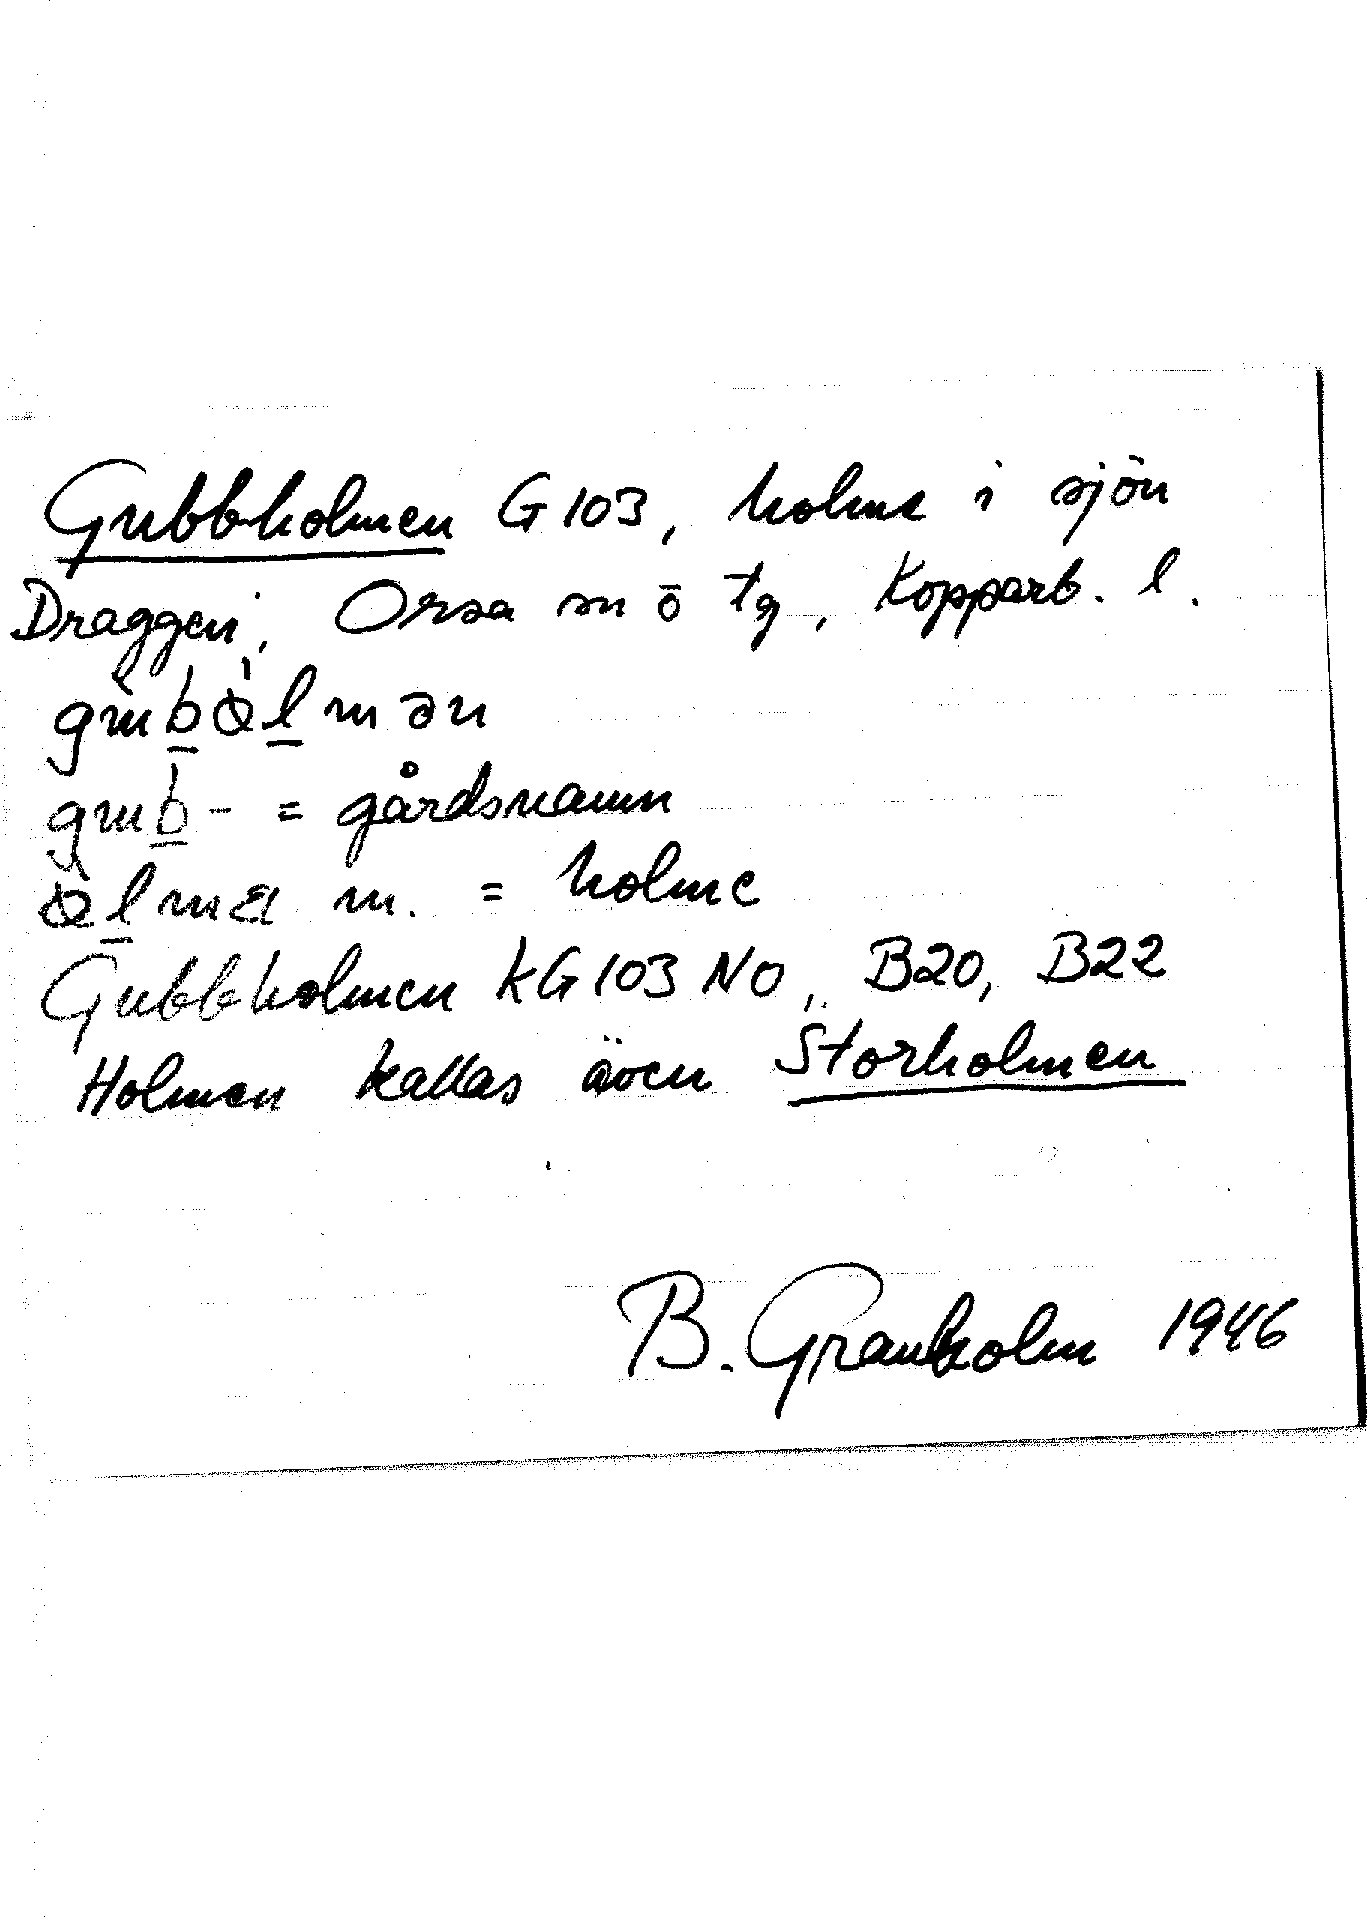 Gubbholmen G103, holme i sjön
Draggen, Orsa sn o tg, Kopparb. l.
gub̲ò̀l̲mən
gub̲- = gårdsnamn
l̲m m. = holme
Gubbholmen kG103 NO, B20, B22
Holmen kallas även Storholmen
B. Granholm 1946